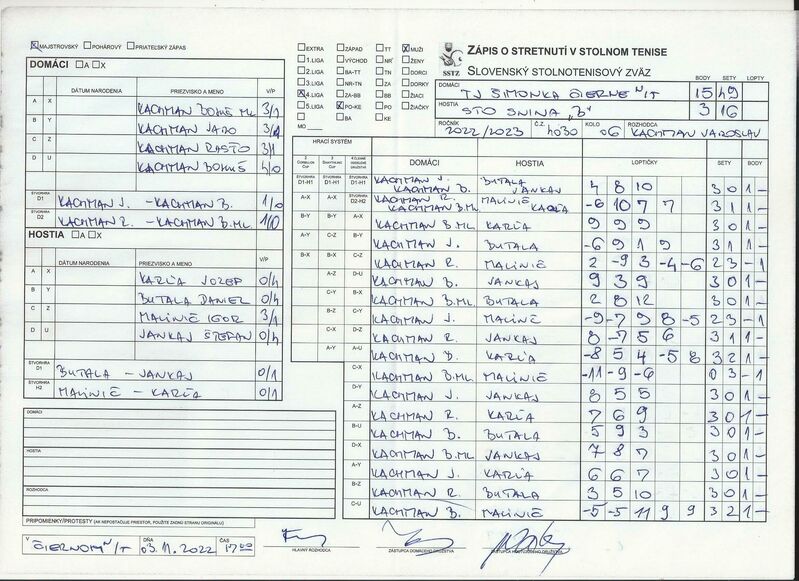 MAJSTROVSKÝ POHÁROVÝ PRIATEĽSKÝ ZÁPAS
DOMÁCI A X
DÁTUM NARODENIA PRIEZVISKO A MENO V/P
A X KACHMAN BOHUŠ ML. 3/1
B Y KACHMAN JARO 3/1
C Z KACHMAN RASŤO 3/1
D U KACHMAN BOHUŠ 4/0
ŠTVORHRA D1 KACHMAN J. - KACHMAN B. 1/0
ŠTVORHRA D2 KACHMAN R. - KACHMAN B.ML. 1/0
HOSTIA A X
DÁTUM NARODENIA PRIEZVISKO A MENO V/P
A X KARĽA JOZEF 0/4
B Y BUTALA DANIEL 0/4
C Z MALINIČ IGOR 3/1
D U JANKAJ ŠTEFAN 0/4
ŠTVORHRA D1 BUTALA - JANKAJ 0/1
ŠTVORHRA H2 MALINIČ - KARĽA 0/1
DOMÁCI
HOSTIA
ROZHODCA
PRIPOMIENKY/PROTESTY (AK NEPOSTAČUJE PRIESTOR, POUŽITE ZADNÚ STRANU ORIGINÁLU)
V ČIERNOM N/T DŇA 03.11.2022 ČAS 17 00
HLAVNÝ ROZHODCA
ZÁSTUPCA DOMÁCEHO DRUŽSTVA
EXTRA ZÁPAD TT MUŽI
1.LIGA VÝCHOD NR ŽENY
2.LIGA BA-TT TN DORCI
3.LIGA NR-TN ZA DORKY
4.LIGA ZA-BB BB ŽIACI
5.LIGA PO-KE PO ŽIAČKY
MO BA KE
SSTZ
ZÁPIS O STRETNUTÍ V STOLNOM TENISE
SLOVENSKÝ STOLNOTENISOVÝ ZVÄZ
BODY SETY LOPTY
DOMÁCI TJ ŠIMONKA ČIERNE N/T 15 49
HOSTIA STO SNINA "B" 3 16
ROČNÍK 2022/2023 Č.Z. 4030 KOLO 06 ROZHODCA KACHMAN JAROSLAV
HRACÍ SYSTÉM
DOMÁCI HOSTIA LOPTIČKY SETY BODY
D1-H1 D1-H1 D1-H1 KACHMAN J. KACHMAN B. BUTALA JANKAJ 4 8 10 3 0 1 -
A-X A-X D2-H2 KACHMAN R. KACHMAN B.ML. MALINIČ KARĽA -6 10 7 7 3 1 1 -
B-Y B-Y A-X KACHMAN B.ML. KARĽA 9 9 9 3 0 1 -
A-Y C-Z B-Y KACHMAN J. BUTALA -6 9 1 9 3 1 1 -
B-X B-X C-Z KACHMAN R. MALINIČ 2 -9 3 -4 -6 2 3 - 1
A-Z D-U KACHMAN B. JANKAJ 9 3 9 3 0 1 -
C-Y B-X KACHMAN B.ML. BUTALA 2 8 12 3 0 1 -
B-Z C-Y KACHMAN J. MALINIČ -9 -7 9 8 -5 2 3 - 1
C-X D-Z KACHMAN R. JANKAJ 8 -7 5 6 3 1 1 -
A-Y A-U KACHMAN B. KARĽA -8 5 4 -5 8 3 2 1 -
C-X KACHMAN B.ML. MALINIČ -11 -9 -6 0 3 - 1
D-Y KACHMAN J. JANKAJ 8 5 5 3 0 1 -
A-Z KACHMAN R. KARĽA 7 6 9 3 0 1 -
B-U KACHMAN B. BUTALA 5 9 3 3 0 1 -
D-X KACHMAN B.ML. JANKAJ 7 8 7 3 0 1 -
A-Y KACHMAN J. KARĽA 6 6 7 3 0 1 -
B-Z KACHMAN R. BUTALA 3 5 10 3 0 1 -
C-U KACHMAN B. MALINIČ -5 -5 11 9 9 3 2 1 -